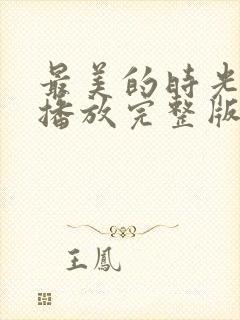 最美的時光
播放完整版
王鳳